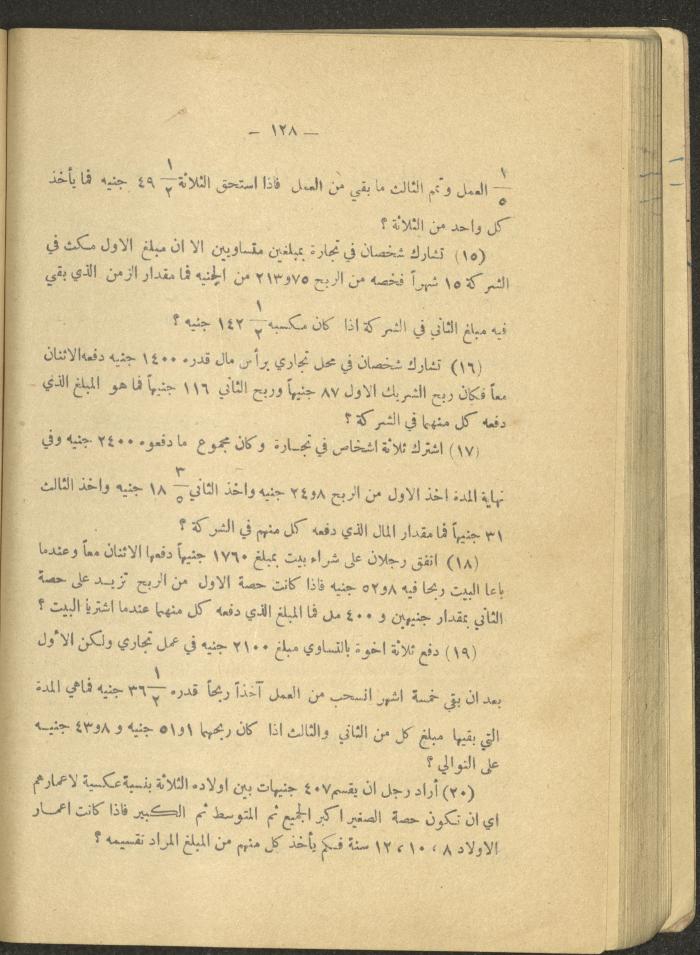 — ١٢٨ —
١/٥ العمل وتمم الثالث ما بقي من العمل فاذا استحق الثلاثة ١/٢ ٤٩ جنيه فما يأخذ
كل واحد من الثلاثة ؟
(١٥) تشارك شخصان في تجارة بمبلغين متساويين الا ان مبلغ الاول مكث في
الشركة ١٥ شهراً فخصه من الربح ٧٥و٢١٣ من الجنيه فما مقدار الزمن الذي بقي
فيه مبلغ الثاني في الشركة اذا كان مكسبه ١/٢ ١٤٢ جنيه ؟
(١٦) تشارك شخصان في محل تجاري برأس مال قدره ١٤٠٠ جنيه دفعه الاثنان
معاً فكان ربح الشريك الاول ٨٧ جنيهاً وربح الثاني ١١٦ جنيهاً فما هو المبلغ الذي
دفعه كل منهما في الشركة ؟
(١٧) اشترك ثلاثة اشخاص في تجارة وكان مجموع ما دفعوه ٢٤٠٠ جنيه وفي
نهاية المدة اخذ الاول من الربح ٨و٢٤ جنيه واخذ الثاني ٣/٥ ١٨ جنيه واخذ الثالث
٣١ جنيهاً فما مقدار المال الذي دفعه كل منهم في الشركة ؟
(١٨) اتفق رجلان على شراء بيت بمبلغ ١٧٦٠ جنيهاً دفعها الاثنان معاً وعندما
باعا البيت ربحا فيه ٨و٥٢ جنيه فاذا كانت حصة الاول من الربح تزيد على حصة
الثاني بمقدار جنيهين و ٤٠٠ مل فما المبلغ الذي دفعه كل منهما عندما اشتريا البيت ؟
(١٩) دفع ثلاثة اخوة بالتساوي مبلغ ٢١٠٠ جنيه في عمل تجاري ولكن الأول
بعد ان بقي خمسة اشهر انسحب من العمل آخذاً ربحاً قدره ١/٢ ٣٦ جنيه فما هي المدة
التي بقيها مبلغ كل من الثاني والثالث اذا كان ربحهما ١و٥١ جنيه و ٨و٤٣ جنيه
على التوالي ؟
(٢٠) أراد رجل ان يقسم ٤٠٧ جنيهات بين اولاده الثلاثة بنسبة عكسية لاعمارهم
اي ان تكون حصة الصغير اكبر الجميع ثم المتوسط ثم الكبير فاذا كانت اعمار
الاولاد ٨ ، ١٠ ، ١٢ سنة فكم يأخذ كل منهم من المبلغ المراد تقسيمه ؟